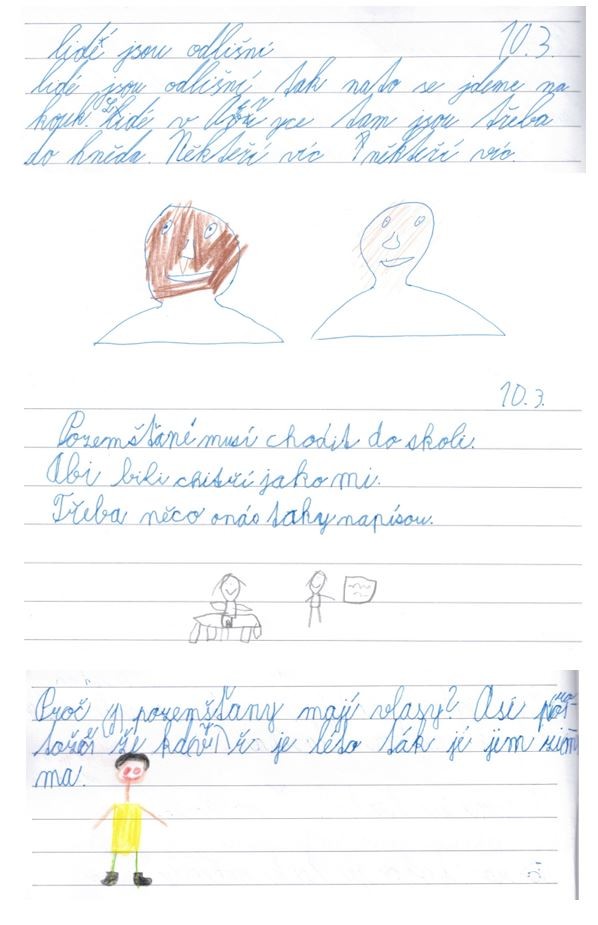 lidé jsou odlišní 10.3.
lidé jsou odlišní tak na to se jdeme na
kouk. Lidé v
jsou třeba
do hněda. Někteří víc někteří víc.
10.3.
Pozemšťané musí chodit do školi.
Abi bili chitří jako mi.
Třeba něco onás taky napísou.
Proč pozemšťany mají vlasy? Asi
je léto tak jí jim
ma.